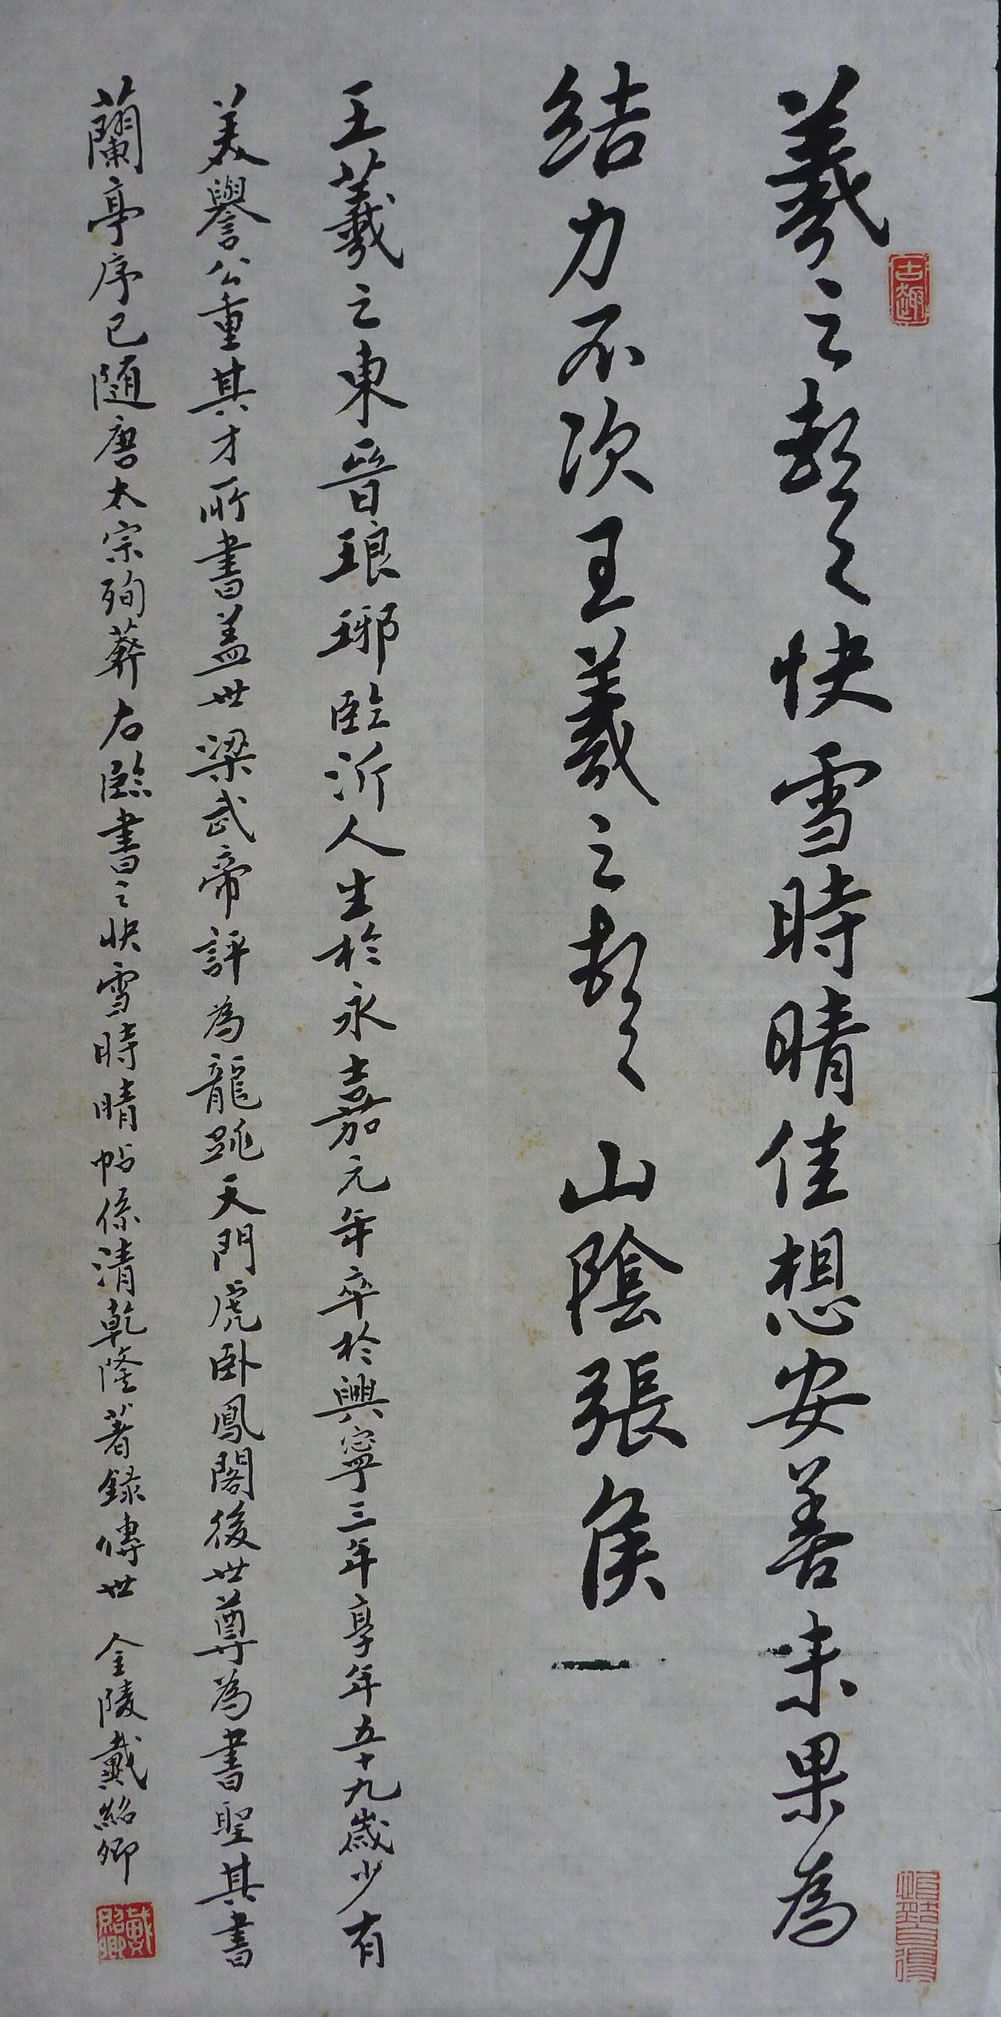 羲之頓首快雪時晴佳想安善未果為
結力不次王羲之頓首山陰張侯
王羲之東晉琅琊臨沂人生於永嘉元年卒於興寧三年享年五十九歲少有
美譽公重其才所書蓋世梁武帝評為龍跳天門虎卧鳳閣後世尊為書聖其書
蘭亭序已隨唐太宗殉葬右臨書之快雪時晴帖係清乾隆著錄傳世 金陵戴紹卿
古趣
戴紹卿